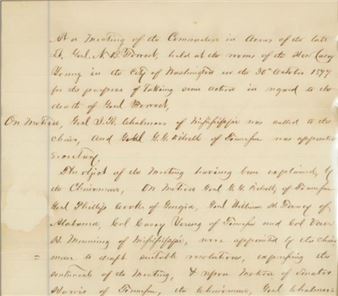 At a Meeting of the Comrades in Arms of the late
Lt. Genl. N. B. Forrest, held at the rooms of the Hon Casey
Young in the City of Washington on the 30th October 1877
for the purpose of taking some action in regard to the
death of Genl Forrest,
On Motion, Genl J. R. Chalmers of Mississippi was called to the
chair, and Genl G. G. Dibrell of Tennessee was appointed
Secretary.
The object of the Meeting having been explained by
the Chairman, On Motion Genl G. G. Dibrell of Tennessee
Genl Phillip Cook of Georgia, Genl William H. Forney of
Alabama, Col Casey Young of Tennessee and Col Van
H. Manning of Mississippi, were appointed by the Chair
man to draft suitable resolutions, expressing the
sentiments of the Meeting, & upon Motion of Senator
Harris of Tennessee, the Chairman, Genl Chalmers